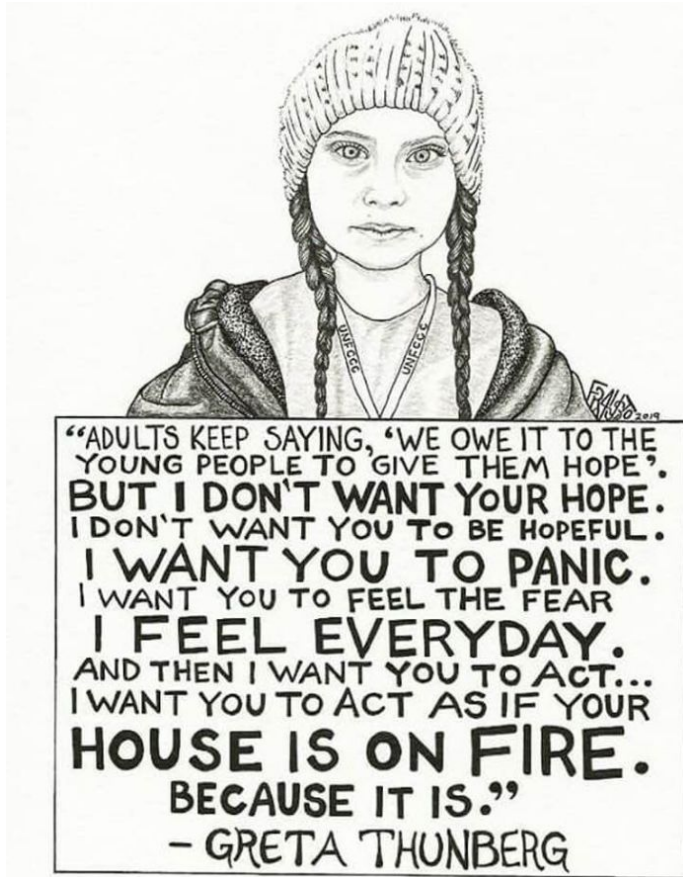 UNFCCC
UNFCCC
2019
“ADULTS KEEP SAYING, ‘WE OWE IT TO THE
YOUNG PEOPLE TO GIVE THEM HOPE’.
BUT I DON'T WANT YOUR HOPE.
I DON'T WANT YOU TO BE HOPEFUL.
I WANT YOU TO PANIC.
I WANT YOU TO FEEL THE FEAR
I FEEL EVERYDAY.
AND THEN I WANT YOU TO ACT...
I WANT YOU TO ACT AS IF YOUR
HOUSE IS ON FIRE.
BECAUSE IT IS.”
– GRETA THUNBERG